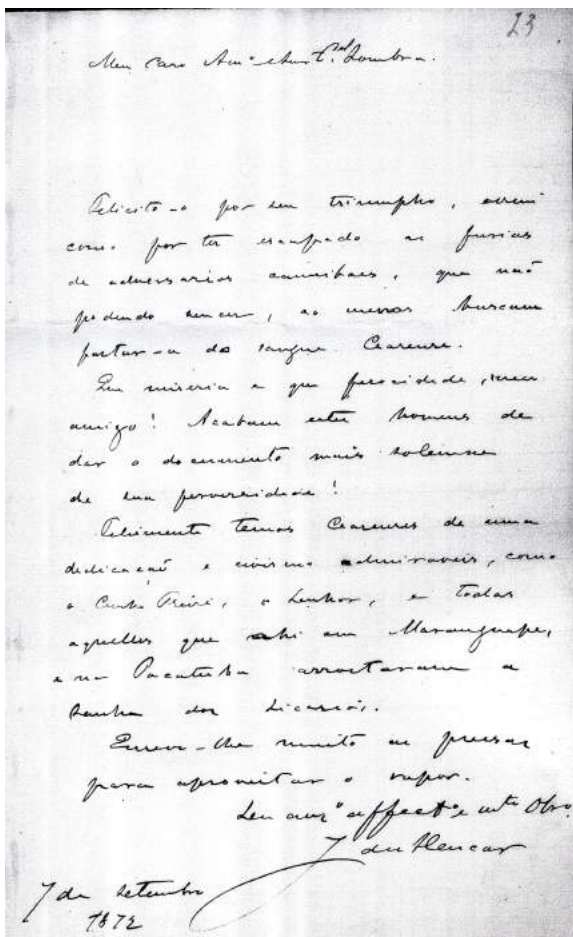 23
Meu Caro Am.º e Sen.r Sombra.
Felicito-o por seu triumpho, assim
como por ter escapado as furias
de adversarios cannibaes, que não
podendo vencer, ao menos buscam
fartar-se do sangue Cearense.
Que miseria e que ferocidade, meu
amigo! Acabam estes homens de
dar o documento mais solemne
de sua perversidade!
Felizmente temos Cearenses de uma
dedicação e civismo admiraveis, como
o Cunha Freire, o Senhor, e todos
aquelles que ahi em Maranguape,
e na Pacatuba arrostaram a
sanha dos sicarios.
Escrevo-lhe muito as pressas
para aproveitar o vapor.
Seu am.º affect.º e mto Obro.
J de Alencar
7 de Setembro
1872